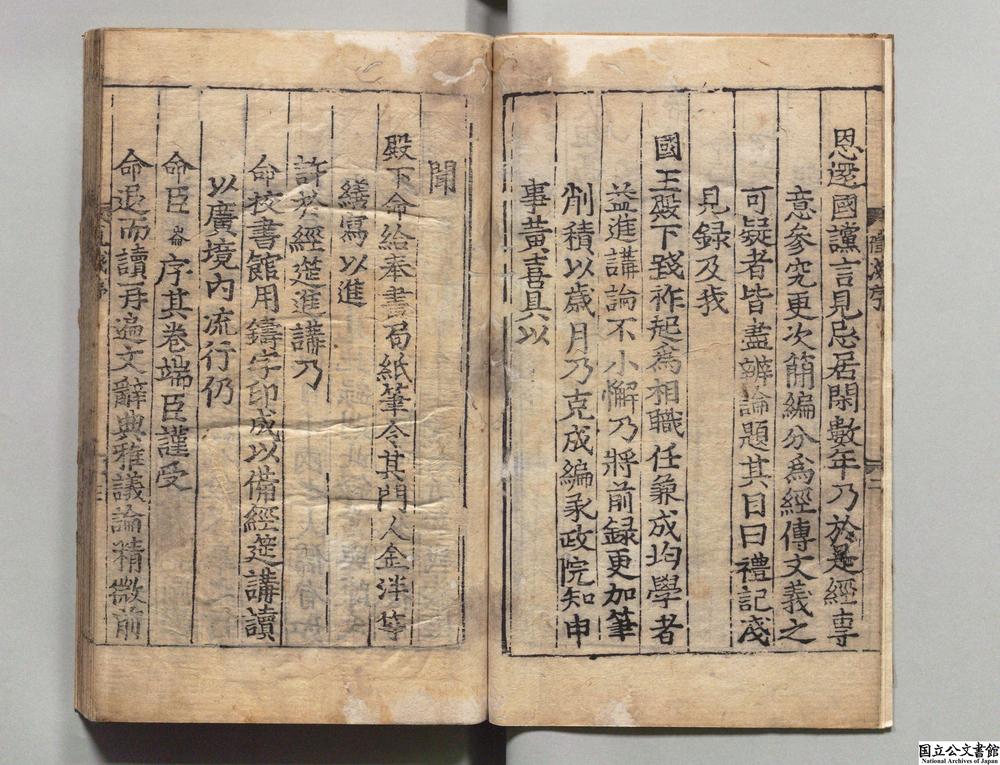 禮淺序
二
恩還國讜言見忌居閑數年乃於是經專
意參究更次簡編分爲經傳文義之
可疑者皆盡辨論題其目曰禮記淺
見録及我
國王殿下踐祚起爲相職任兼成均學者
益進講論不小懈乃將前録更加筆
削積以歲月乃克成編承政院知申
事黃喜具以
聞
殿下命給奉書局紙筆令其門人金泮等
繕寫以進
許於經筵進講乃
命校書館用鑄字印成以備經筵講讀
以廣境内流行仍
命臣崙序其卷端臣謹受
命退而讀再遍文辭典雅議論精微前
国立公文書館
National Archives of Japan